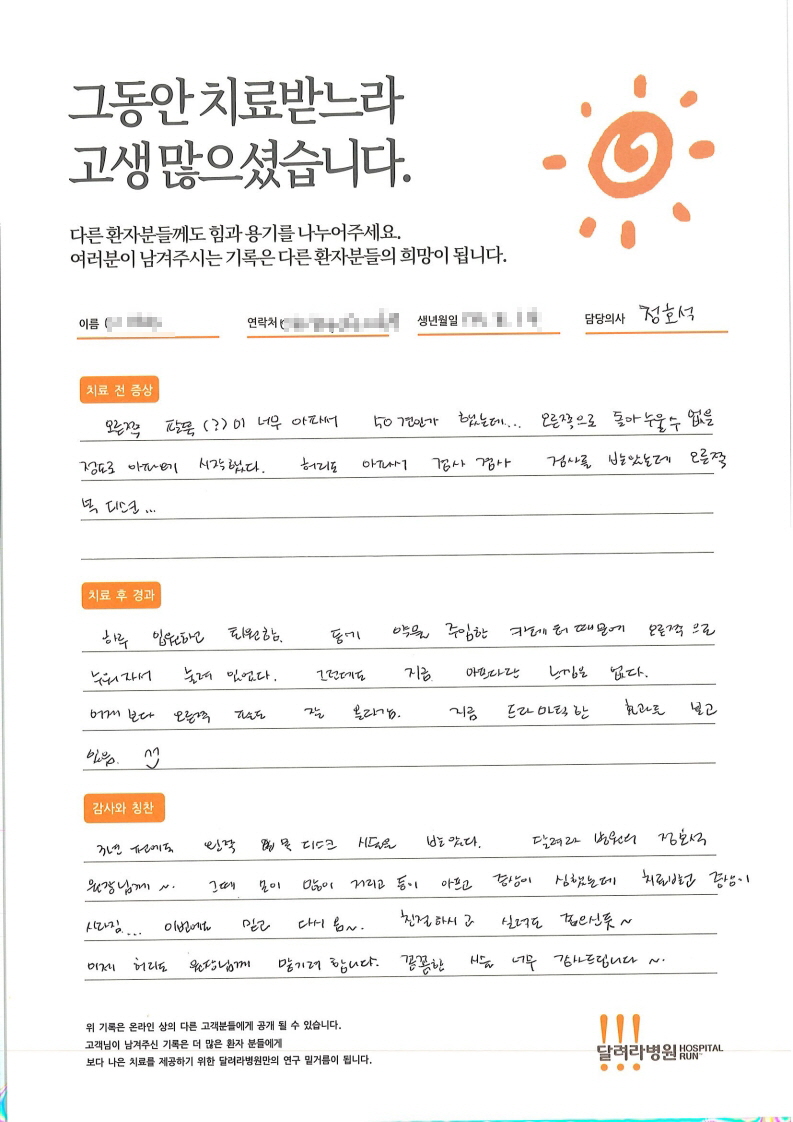 그동안 치료받느라
고생 많으셨습니다.
다른 환자분들께도 힘과 용기를 나누어주세요.
여러분이 남겨주시는 기록은 다른 환자분들의 희망이 됩니다.
이름 연락처 생년월일 담당의사 정호석
치료 전 증상
오른쪽 팔뚝(?)이 너무 아파서 50견인가 했는데... 오른쪽으로 돌아 누울 수 없을
정도로 아파지기 시작했다. 허리도 아파서 겸사 겸사 검사를 받았는데 오른쪽
목 디스크...
치료 후 경과
하루 입원하고 퇴원함. 등에 약을 주입한 카테터 때문에 오른쪽으로
누워자서 눌려 있었다. 그런데도 지금 아프다란 느낌은 없다.
어제보다 오른쪽 팔도 잘 올라감. 지금 드라마틱한 효과를 보고
있음.
감사와 칭찬
3년 전에도 왼쪽 목 디스크 시술을 받았다. 달려라 병원의 정호석
원장님께~. 그때 목이 많이 저리고 등이 아프고 증상이 심했는데 치료받고 증상이
사라짐... 이번에도 믿고 다시 옴~. 친절하시고 실력도 좋으신듯~
이제 허리도 원장님께 맡기려 합니다. 꼼꼼한 시술 너무 감사드립니다~.
위 기록은 온라인 상의 다른 고객분들에게 공개 될 수 있습니다.
고객님이 남겨주신 기록은 더 많은 환자 분들에게
보다 나은 치료를 제공하기 위한 달려라병원만의 연구 밑거름이 됩니다.
달려라병원 HOSPITAL RUN